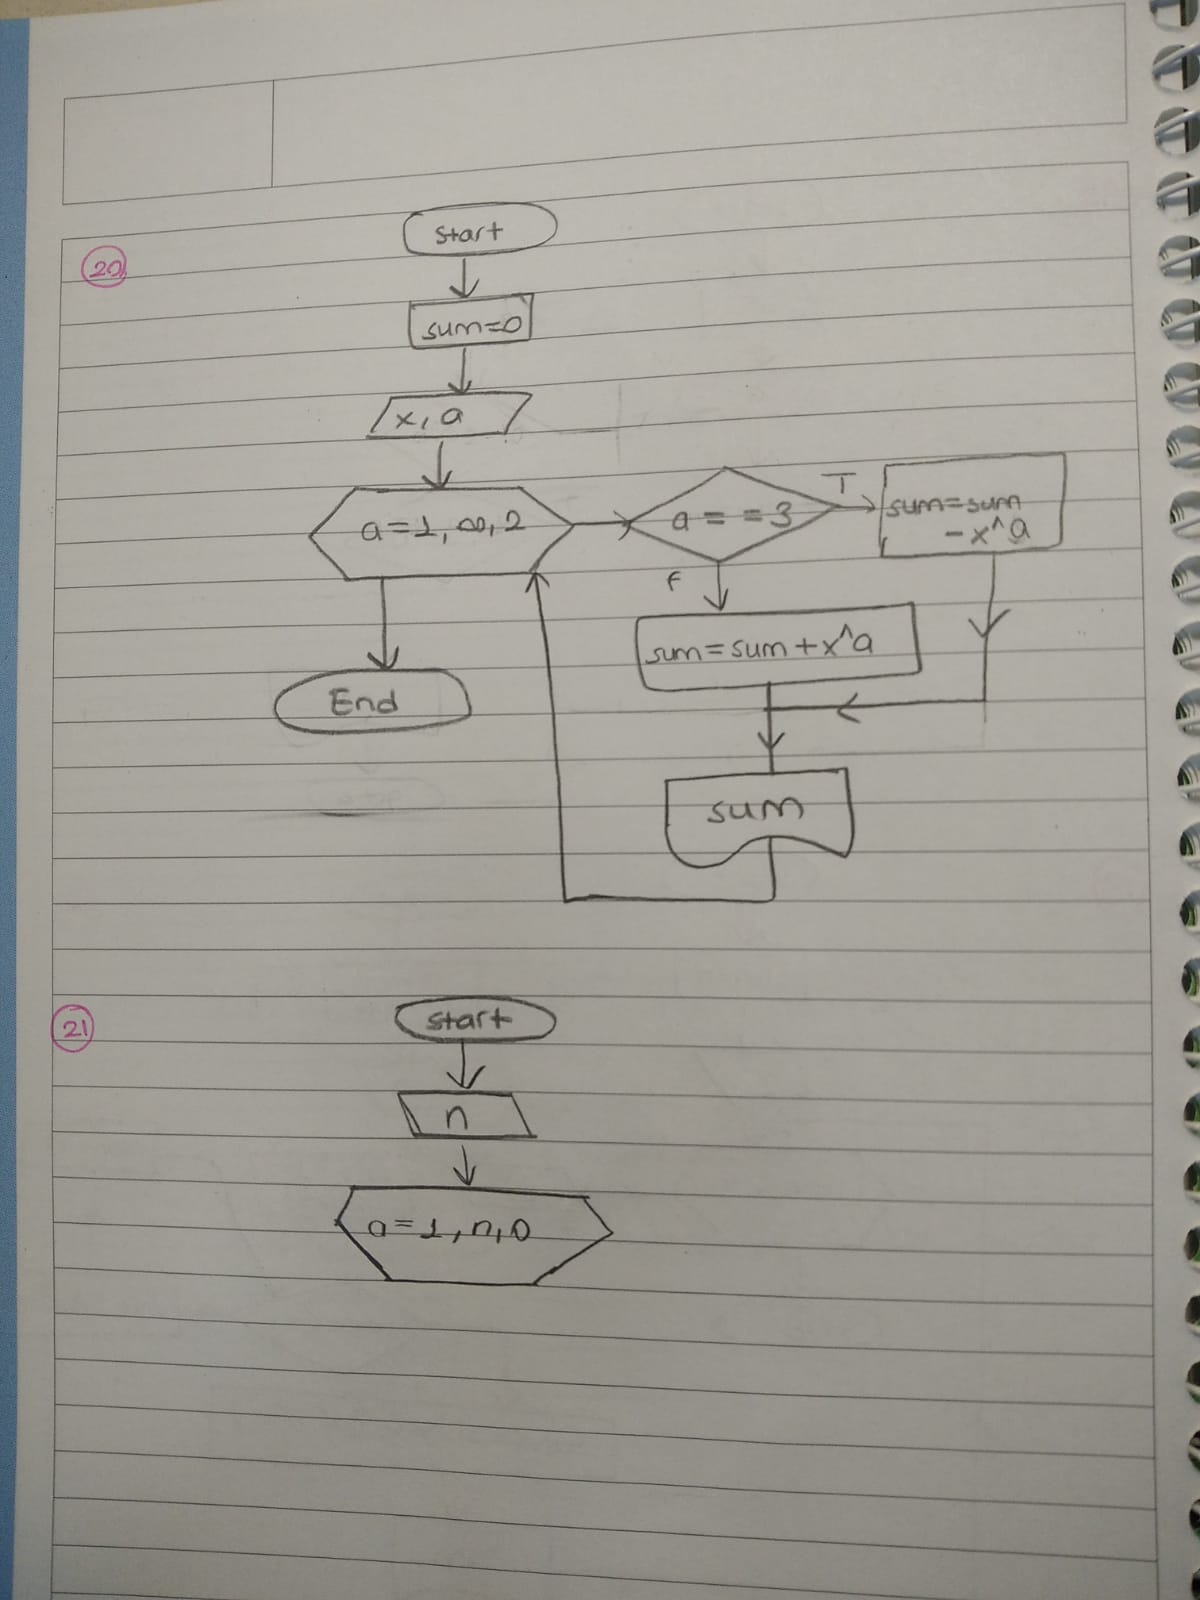 20
start
sum=0
x, a
a=1, ∞, 2
a==3
T
sum=sum
-x^a
F
sum=sum+x^a
End
sum
21
start
n
a=1, n, 0